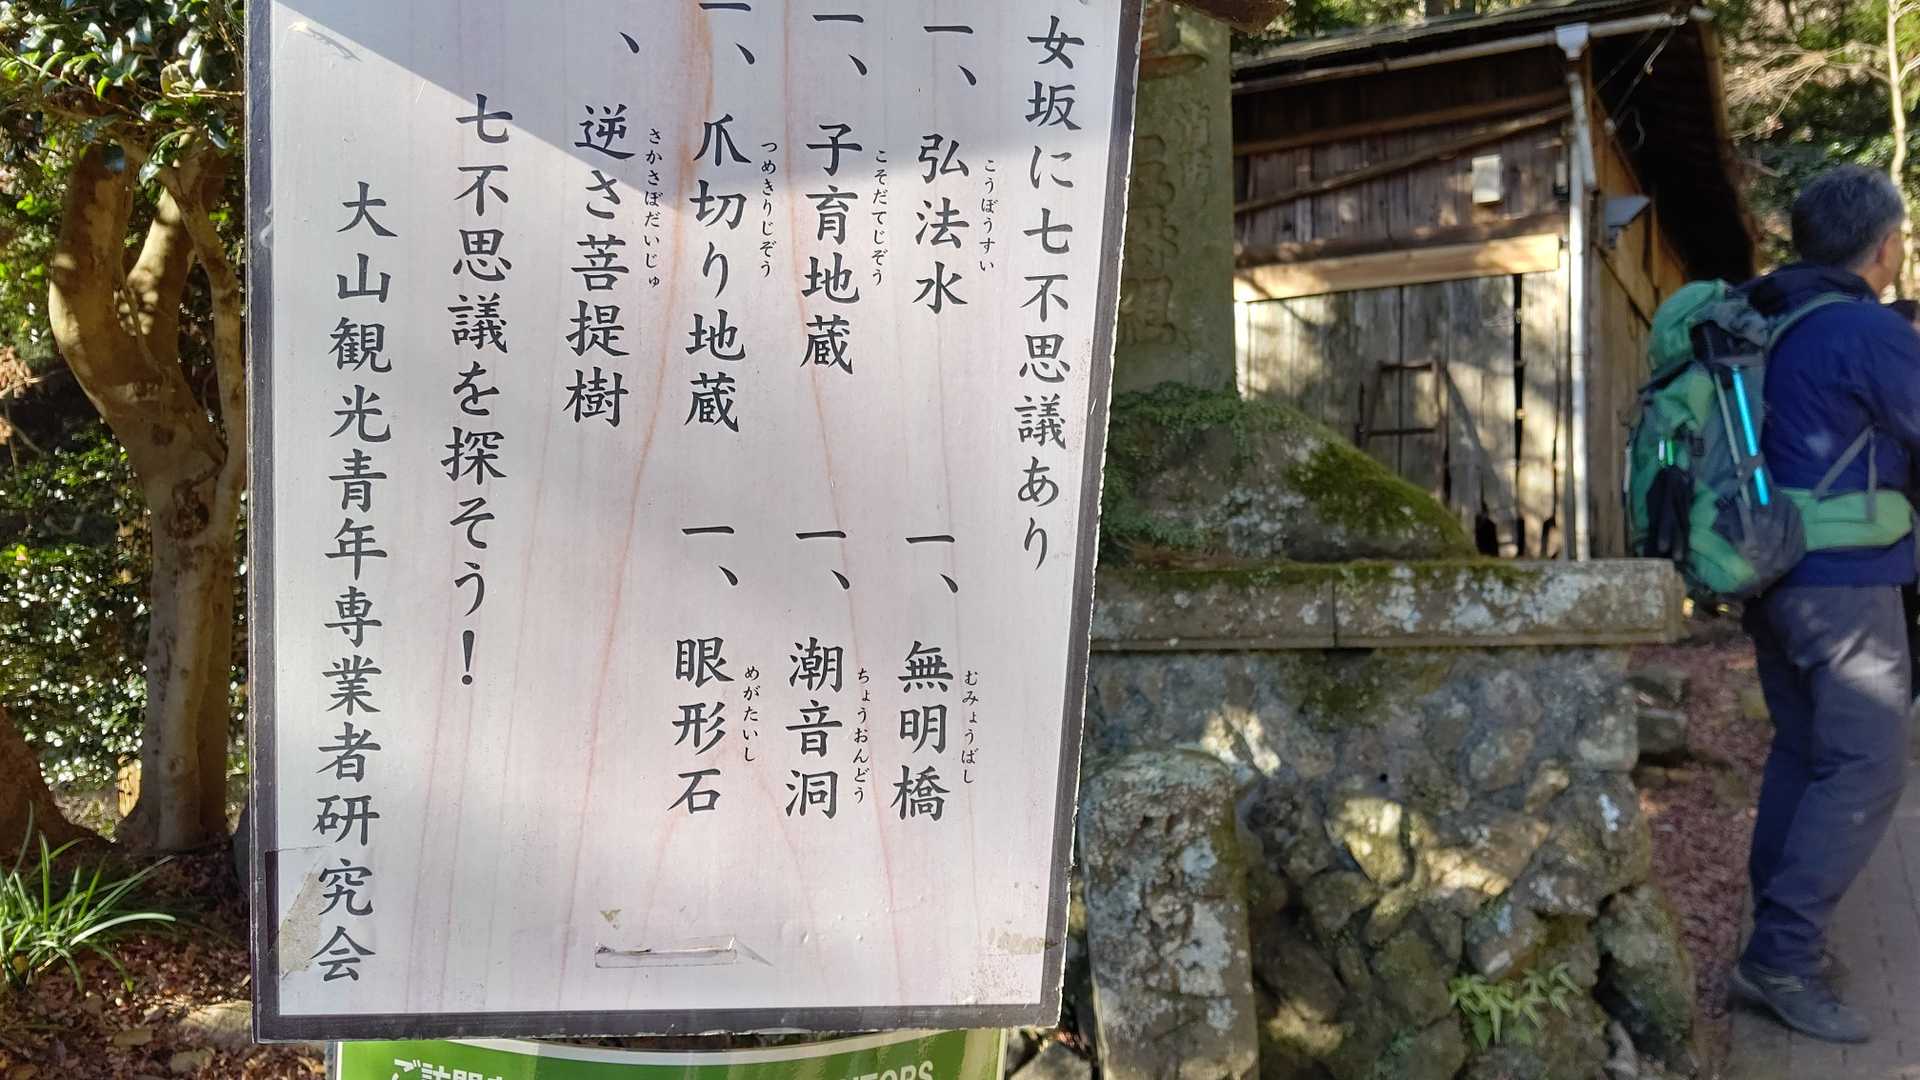 女坂に七不思議あり
一、弘法水
こうぼうすい
一、無明橋
むみょうばし
一、子育地蔵
こそだてじぞう
一、潮音洞
ちょうおんどう
一、爪切り地蔵
つめきりじぞう
一、眼形石
めがたいし
、逆さ菩提樹
さかさぼだいじゅ
七不思議を探そう！
大山観光青年専業者研究会